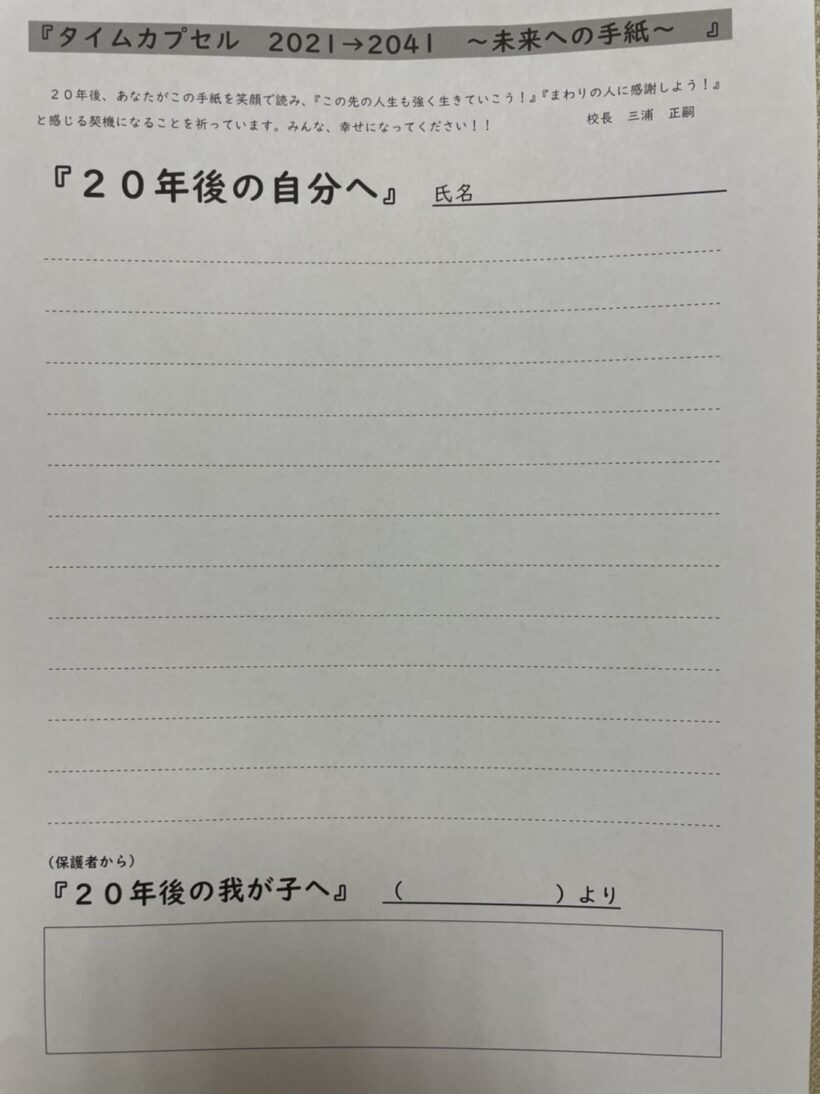 『タイムカプセル　2021→2041　～未来への手紙～　』
２０年後、あなたがこの手紙を笑顔で読み、『この先の人生も強く生きていこう！』『まわりの人に感謝しよう！』
と感じる契機になることを祈っています。みんな、幸せになってください！！　校長　三浦　正嗣
『２０年後の自分へ』　氏名
（保護者から）
『２０年後の我が子へ』　（　　　　　　　）より